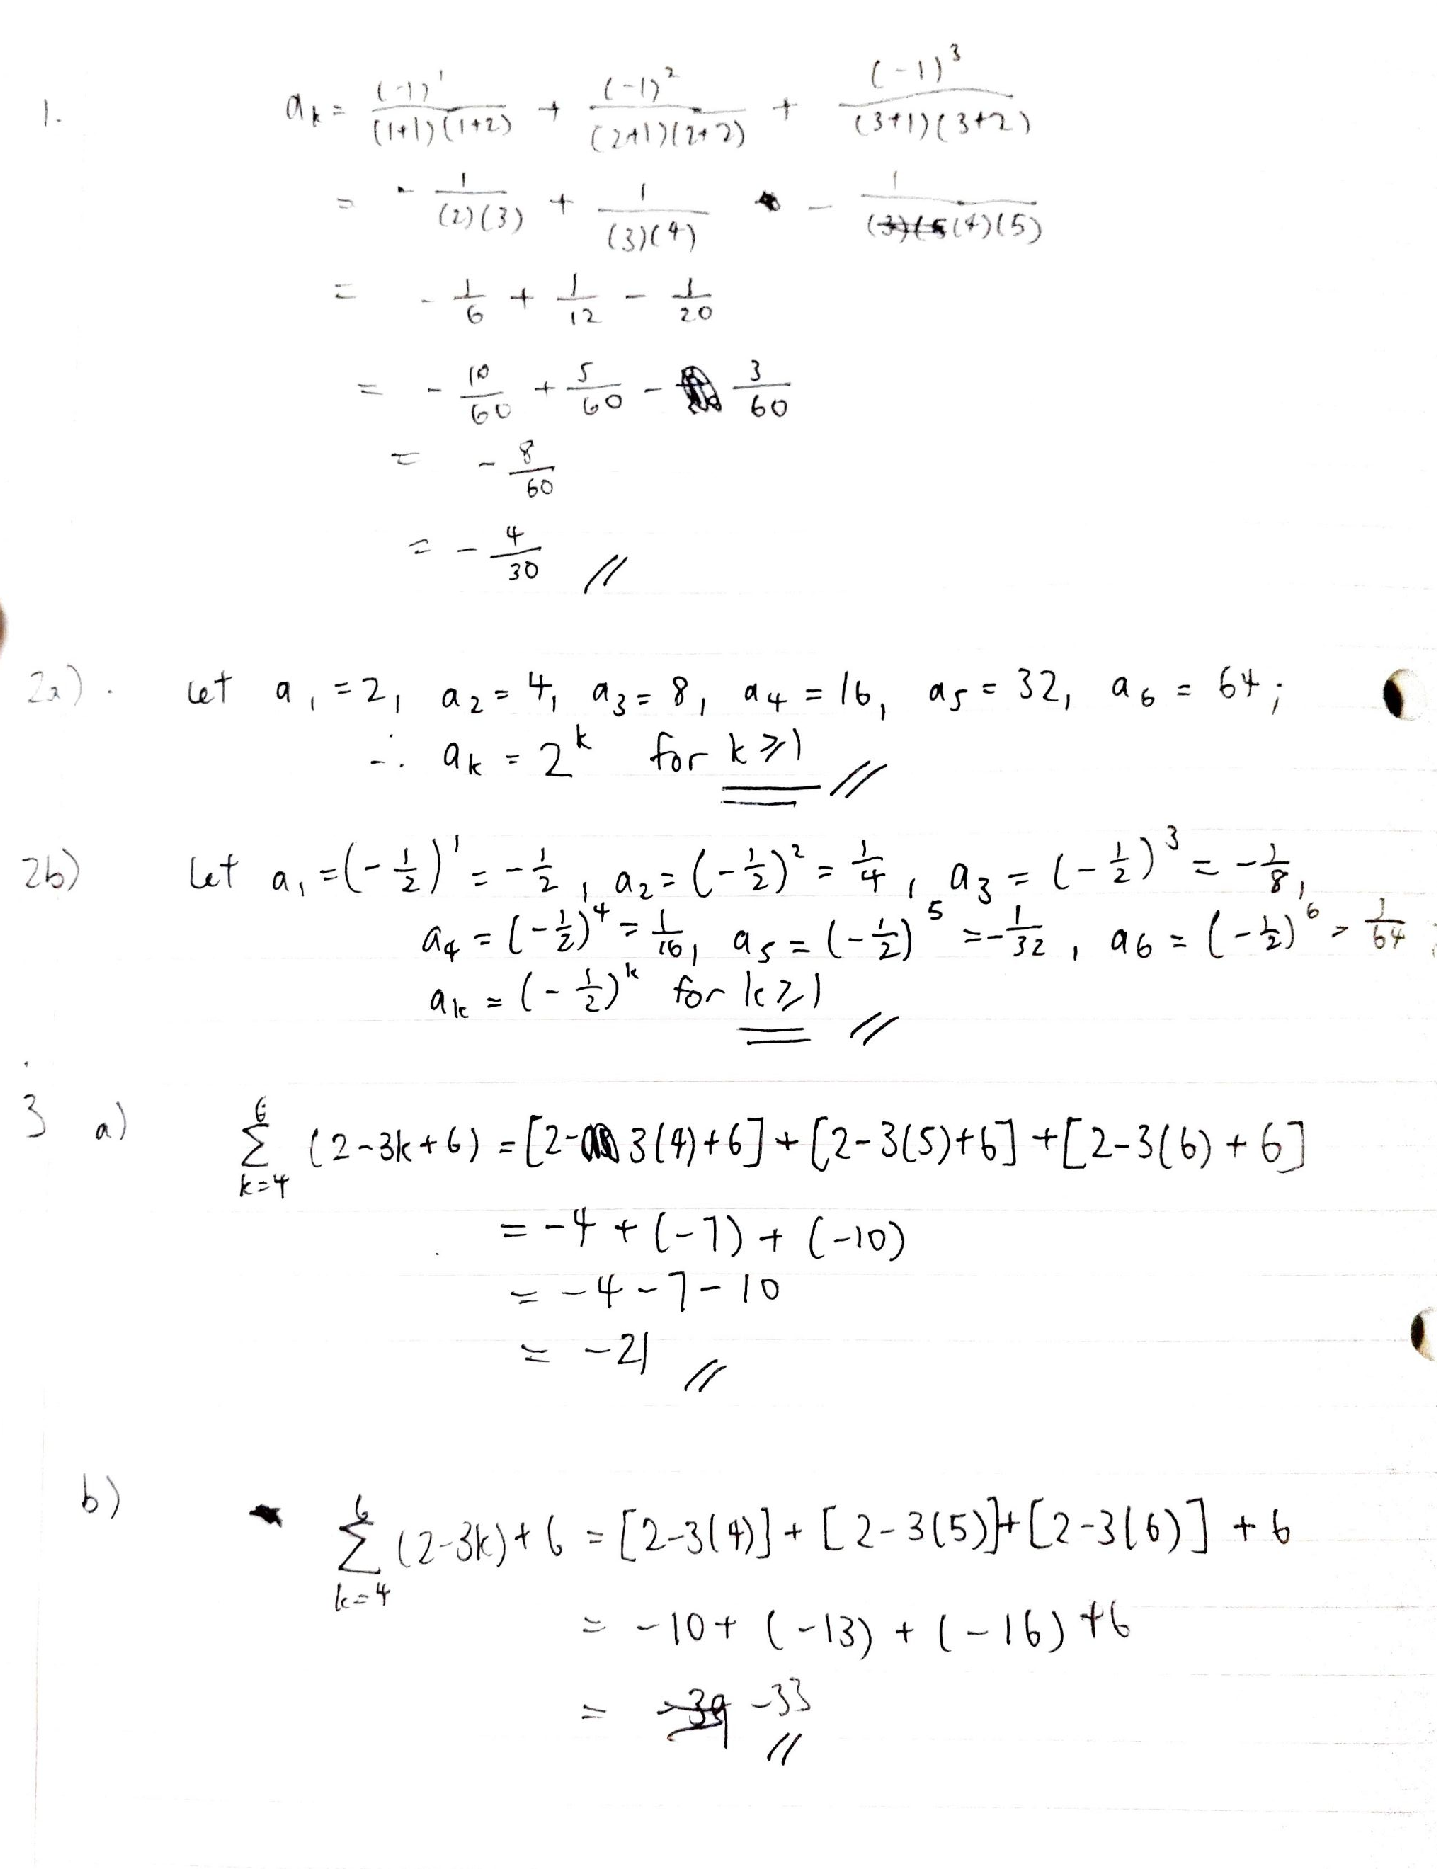 1. a_k = (-1)^1/((1+1)(1+2)) + (-1)^2/((2+1)(2+2)) + (-1)^3/((3+1)(3+2))
= - 1/((2)(3)) + 1/((3)(4)) - 1/((4)(5))
= - 1/6 + 1/12 - 1/20
= - 10/60 + 5/60 - 3/60
= - 8/60
= - 4/30 //
2a). Let a_1 = 2, a_2 = 4, a_3 = 8, a_4 = 16, a_5 = 32, a_6 = 64;
∴ a_k = 2^k for k ⩾ 1 //
2b) Let a_1 = (-1/2)^1 = -1/2, a_2 = (-1/2)^2 = 1/4, a_3 = (-1/2)^3 = -1/8,
a_4 = (-1/2)^4 = 1/16, a_5 = (-1/2)^5 = -1/32, a_6 = (-1/2)^6 = 1/64;
a_k = (-1/2)^k for k ⩾ 1 //
3 a) Σ_{k=4}^{6} (2-3k+6) = [2-3(4)+6] + [2-3(5)+6] + [2-3(6)+6]
= -4 + (-7) + (-10)
= -4-7-10
= -21 //
b) Σ_{k=4}^{6} (2-3k)+6 = [2-3(4)] + [2-3(5)] + [2-3(6)] + 6
= -10 + (-13) + (-16) +6
= -39 -33 //